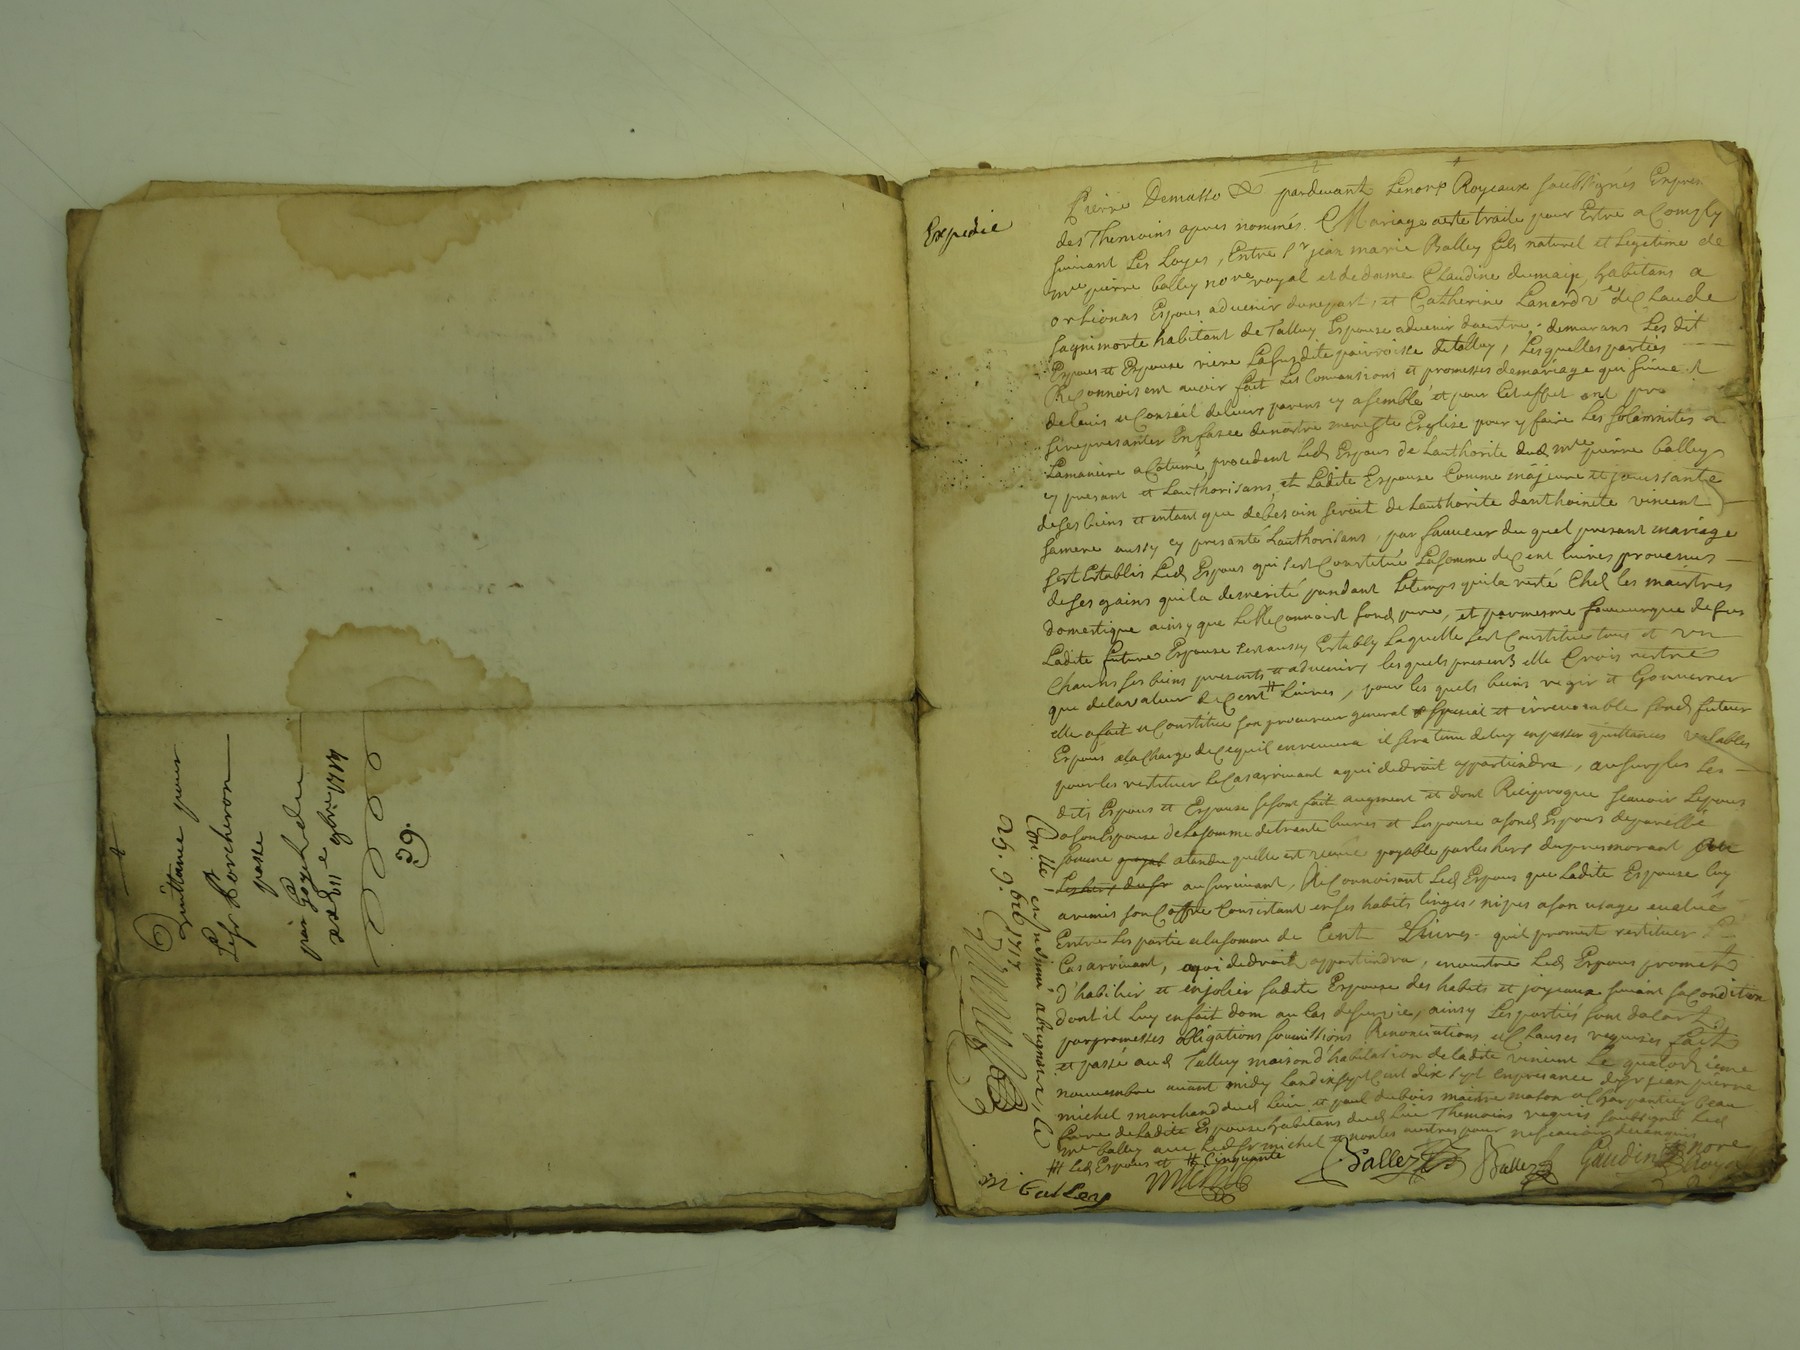 Quittance pour
Le Sr Porcheron
passe
par Gayet du
xxviie 9bre 1717
29.
Expedié
Pierre Demasso & pardevant Lenore Royeaux soubsignés En presen
des Themoins apres nommés. Mariage aeste traité pour Estre acomply
suivant Les Loyes, Entre Sr jean marie Balley fils naturel et Legetime de
me pierre balley nore royal et de dame Claudine dumaix habitans a
orlienas Espous advenir dunepart, et Catherine Lanard ve de Claude
habitant de Talluy Espouse advenir dautre, demurans Les dit
Espous et Espouse riere Lasusdite parroisse de talluy, Lesquelles parties
Reconnoissent avoir fait Les Convansions et promesses demariage qui suive
delavis et Conseil deleurs parens cy asemblé et pour Cet effet ont pro
se represanter En fasce denostre mere ste Esglise pour y faire Les solamnites a
Lamaniere acotumé, procedent Led Espous de Lauthorite dud me pierre balley
cy presant et Lauthorisans, et Ladite Espouse Comme majeure et jouissante
de ses biens et entant que debesoin seroit de Lauthorite danthoinete vincent
samere aussy cy presante Lauthorisans, par faveur du quel presant mariage
sest Establis Led Espous qui sest Constitué La somme de Cent livres provenus
de ses gains quila demérité pandant Letemps quila resté Chel les maistres
domestique ainsy que Le Reconnoist sond pere, et parmesme faveur que desus
Ladite future Espouse sestaussy Estably Laquelle sest Constitue tous et un
Chacuns ses biens presents et advenirs lesquels presents elle Crois nestre
que delavaleur de Cent # Livres, pour les quels biens regir et Gouverner
elle afait et Constitue son procureur general & special et irrevocable sond futeur
Espous ala Charge de Cequil enrecevra il sera tenu deluy enpasser quittances valables
pour les restituer le Cas arrivant aquidedroit appartiendra, ausurplus Les
dits Espous et Espouse sesont fait augment et dont Reciproque scavoir Lepous
ason Espouse de Lasomme detrante livres et Lespouse asond Espous depareille
somme atandu quelle est veuve payable parles hers dupremorant
Les hers dusr ausurvivant, Reconnoisant Led Espous que Ladite Espouse luy
aremis son Coffre Consistant enses habits linges, nipes ason usage evalué
Entre Les partie alasomme de Cent Livres quil promet restituer Le
Cas arrivant, aqui dedroit appartiendra, enoutre Led Espous promet
d'habilier et enjolier sadite Espouse des habits et joyeaux suivant sa Condition
dont il Luy enfait dom au Cas desurvie, ainsy Les partiés sont dalord
parpromesses obligations soumissions Renonciations et Clauses requises fait
et passé aud Talluy maison d'habitation de ladite vincent Le quatorzieme
nouvembre avant midy Landix sept Cent dix sept enpresance de Sr jean pierre
michel marchand dud Lieu et paul dubois maistre mason et Charpantier beau
frere de Ladite Espouse habitans dud Lieu Themoins requis soubsigné Led
me balley avec Led Sr michel et nonles autres pour nescavoir
# Led Espous et # Cinquante
Michel Balley Balley Gaudin nore Royal
m Balley
Conllé
25. 9bre 1717